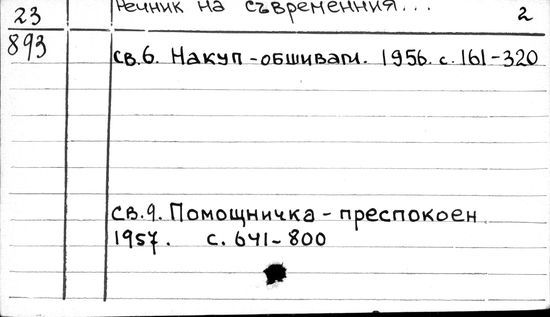 Речник на съвременния... 2
23
893
св.6. Накуп-обшивам. 1956. с. 161-320
св.9. Помощничка - преспокоен
1957. с. 641-800